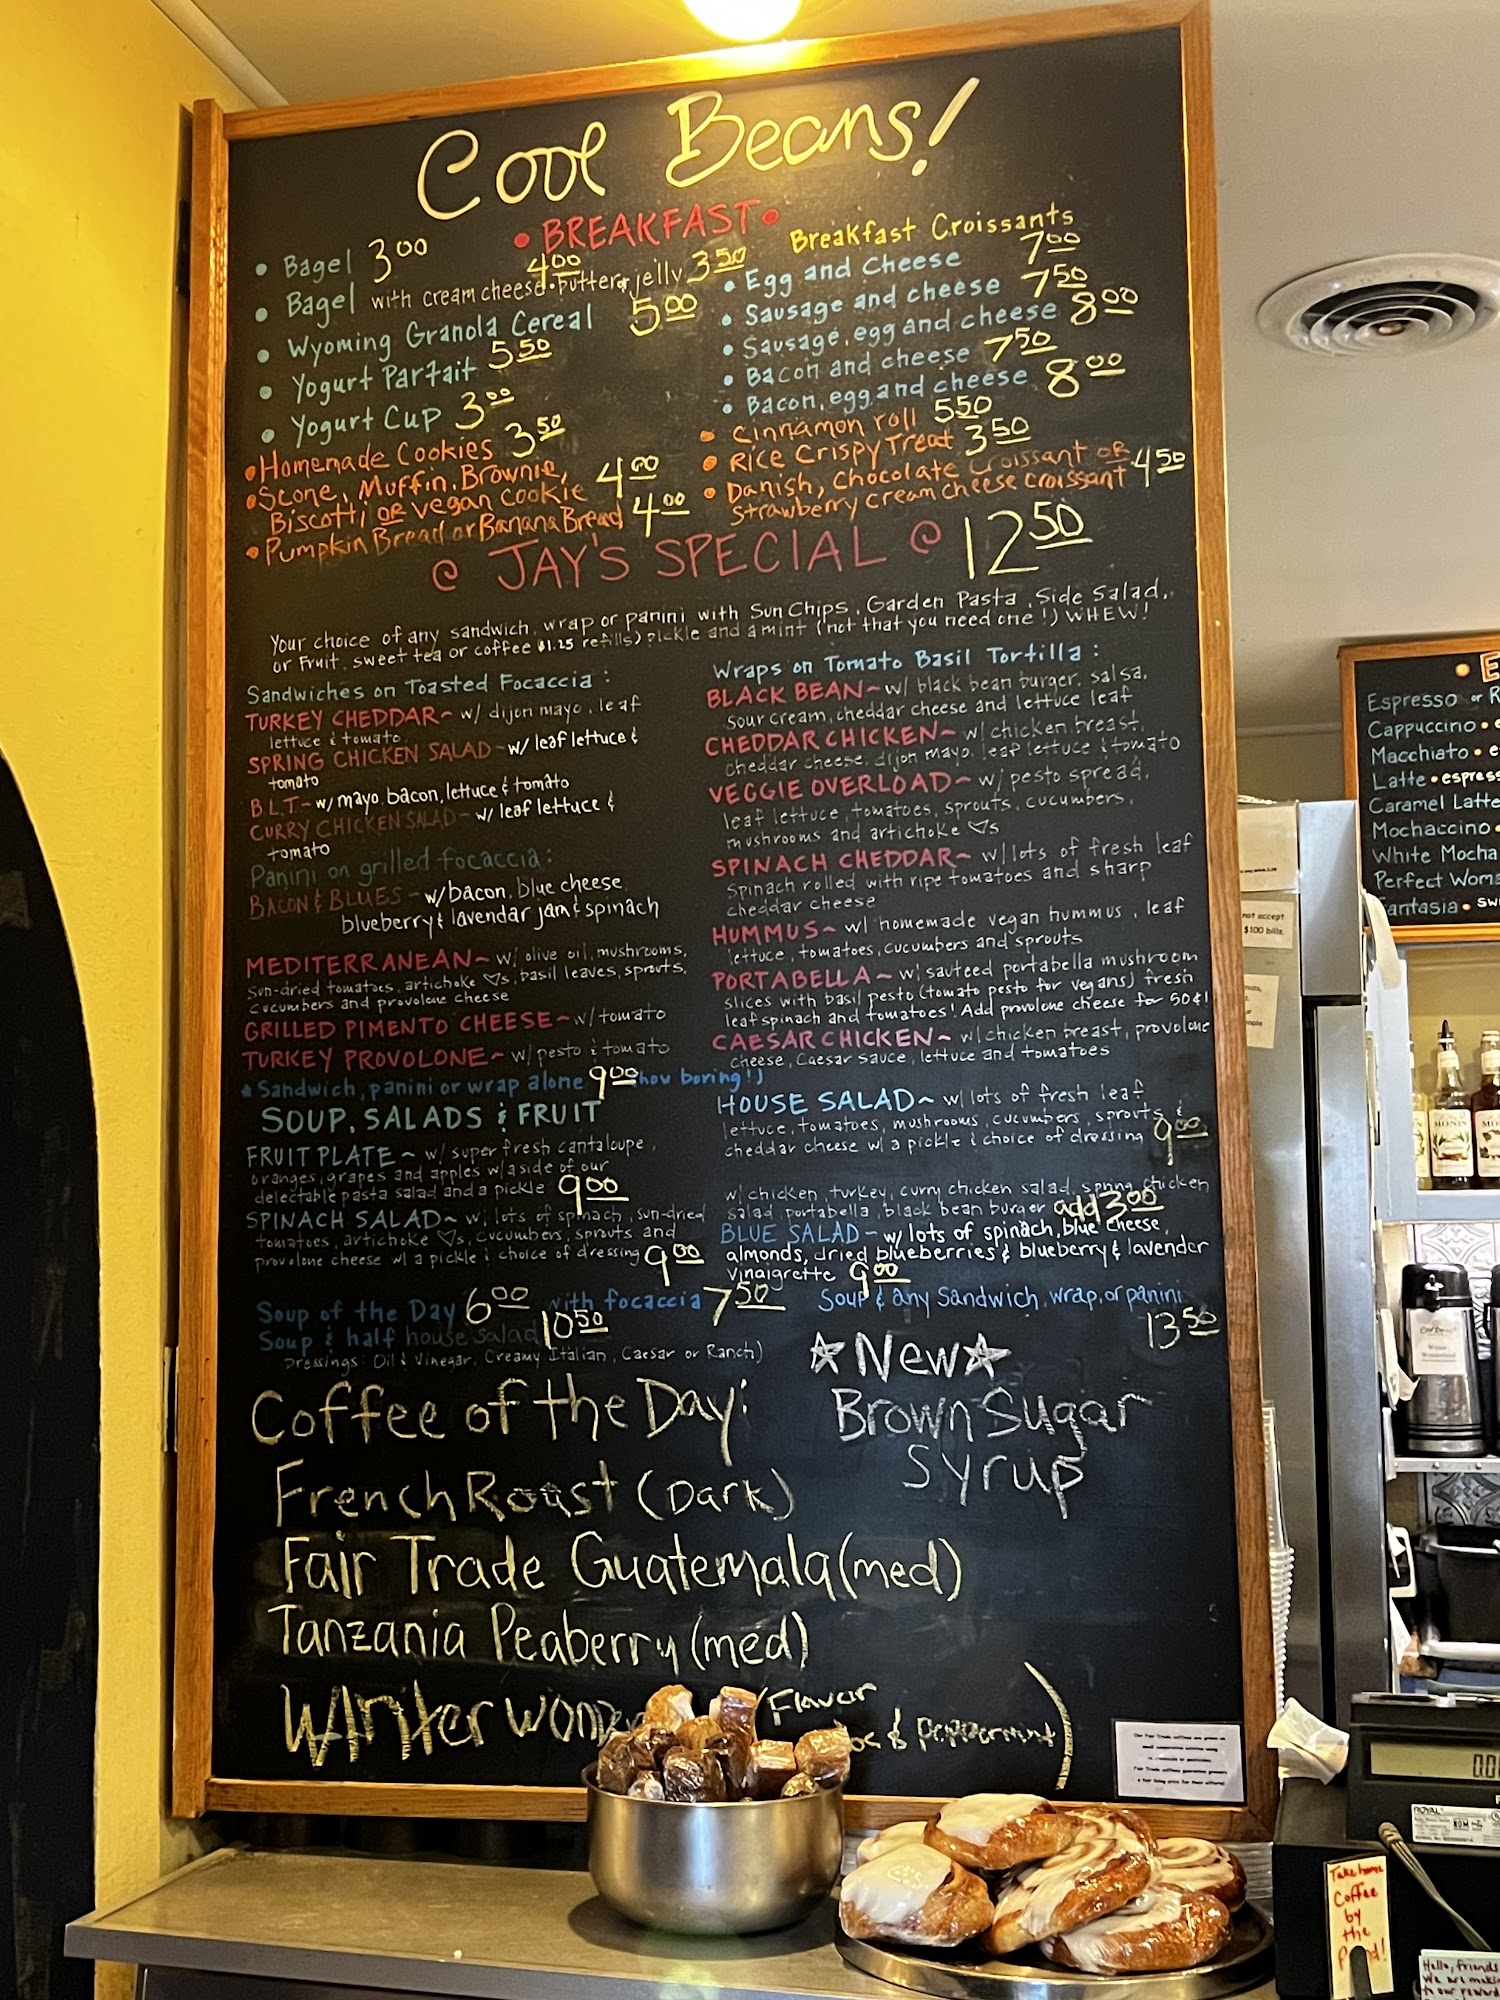 Cool Beans!
• BREAKFAST •
• Bagel 3.00
• Bagel with cream cheese 4.00 • butter or jelly 3.50
• Wyoming Granola Cereal 5.00
• Yogurt Parfait 5.50
• Yogurt Cup 3.00
• Homemade Cookies 3.50
• Scone, Muffin, Brownie,
Biscotti or vegan cookie 4.00
• Pumpkin Bread or Banana Bread 4.00
Breakfast Croissants
• Egg and Cheese 7.00
• Sausage and cheese 7.50
• Sausage, egg and cheese 8.00
• Bacon and cheese 7.50
• Bacon, egg and cheese 8.00
• Cinnamon roll 5.50
• Rice Crispy Treat 3.50
• Danish, Chocolate Croissant OR
Strawberry cream cheese croissant 4.50
@ JAY'S SPECIAL @ 12.50
Your choice of any sandwich, wrap or panini with Sun Chips, Garden Pasta, Side Salad,
or Fruit, sweet tea or coffee $1.25 refills) pickle and a mint (not that you need one!) WHEW!
Sandwiches on Toasted Focaccia:
TURKEY CHEDDAR~ w/ dijon mayo, leaf
lettuce & tomato
SPRING CHICKEN SALAD - w/ leaf lettuce &
tomato
B.L.T.- w/ mayo, bacon, lettuce & tomato
CURRY CHICKEN SALAD - w/ leaf lettuce &
tomato
Panini on grilled focaccia:
BACON & BLUES - w/ bacon, blue cheese
blueberry & lavendar jam & spinach
MEDITERRANEAN~ w/ olive oil, mushrooms,
sun-dried tomatoes, artichoke ♡s, basil leaves, sprouts,
cucumbers and provolone cheese
GRILLED PIMENTO CHEESE~ w/ tomato
TURKEY PROVOLONE~ w/ pesto & tomato
* Sandwich, panini or wrap alone 9.00 (how boring!)
Wraps on Tomato Basil Tortilla:
BLACK BEAN~ w/ black bean burger, salsa,
sour cream, cheddar cheese and lettuce leaf
CHEDDAR CHICKEN~ w/ chicken breast,
cheddar cheese, dijon mayo, leaf lettuce & tomato
VEGGIE OVERLOAD~ w/ pesto spread,
leaf lettuce, tomatoes, sprouts, cucumbers,
mushrooms and artichoke ♡s
SPINACH CHEDDAR~ w/ lots of fresh leaf
spinach rolled with ripe tomatoes and sharp
cheddar cheese
HUMMUS~ w/ homemade vegan hummus, leaf
lettuce, tomatoes, cucumbers and sprouts
PORTABELLA~ w/ sauteed portabella mushroom
slices with basil pesto (tomato pesto for vegans) fresh
leaf spinach and tomatoes! Add provolone cheese for 50¢!
CAESAR CHICKEN~ w/ chicken breast, provolone
cheese, Caesar sauce, lettuce and tomatoes
SOUP, SALADS & FRUIT
FRUIT PLATE~ w/ super fresh cantaloupe,
oranges, grapes and apples w/ a side of our
delectable pasta salad and a pickle 9.00
SPINACH SALAD~ w/ lots of spinach, sun-dried
tomatoes, artichoke ♡s, cucumbers, sprouts and
provolone cheese w/ a pickle & choice of dressing 9.00
HOUSE SALAD~ w/ lots of fresh leaf
lettuce, tomatoes, mushrooms, cucumbers, sprouts &
cheddar cheese w/ a pickle & choice of dressing 9.00
w/ chicken, turkey, curry chicken salad, spring chicken
salad, portabella, black bean burger add 3.00
BLUE SALAD - w/ lots of spinach, blue cheese,
almonds, dried blueberries & blueberry & lavender
vinaigrette 9.00
Soup of the Day 6.00 with focaccia 7.50
Soup & half house salad 10.50
Soup & any Sandwich, wrap, or panini
13.50
Dressings: Oil & Vinegar, Creamy Italian, Caesar or Ranch)
Coffee of the Day:
French Roast (Dark)
Fair Trade Guatemala (med)
Tanzania Peaberry (med)
Winter (Flavor
& Peppermint)
☆New☆
Brown Sugar
Syrup
Espresso
Cappuccino •
Macchiato •
Latte • espress
Caramel Latte
Mochaccino •
White Mocha
Perfect Wom
Fantasia •
not accept
$100 bills.
MONIN
ROYAL
Take home
Coffee
by
the
Hello, friends